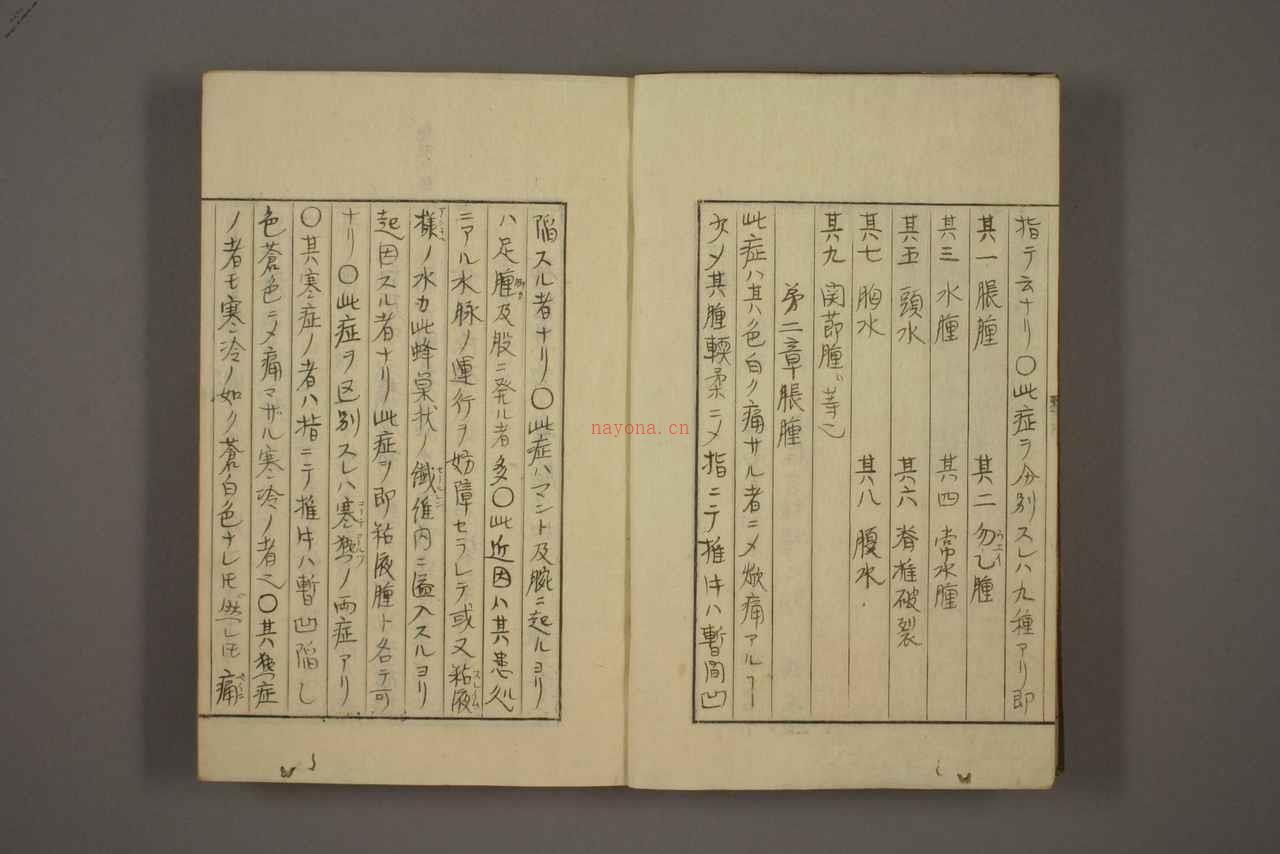 指テ云ナリ〇此症ヲ分別スレハ九種アリ即
其一 脹腫 其二 勿乙腫
其三 水腫 其四 常水腫
其五 頭水 其六 脊椎破裂
其七 胸水 其八 腹水
其九 関節腫 等
第二章脹腫
此症ハ其色白ク痛サル者ニメ焮痛アルヿ
少メ其腫輭柔ニメ指ニテ推ㇰハ暫間凹
陥スル者ナリ〇此症ハマント及腕ニ起ルヨリ
ハ足腫及股ニ発ル者多〇此近因ハ其患処
ニアル水脉ノ運行ヲ妨障セラレテ或又粘液
様ノ水カ此蜂巣状ノ繊維内ニ溢入スルヨリ
起因スル者ナリ此症ヲ即粘液腫ト名テ可
ナリ〇此症ヲ区別スレハ寒熱ノ両症アリ
〇其寒症ノ者ハ指ニテ推ハ暫凹陥し
色蒼色ニメ痛マザル寒冷ノ者〇其熱症
ノ者モ寒冷ノ如ク蒼白色ナレ𪜈然レ𪜈痛
nayona.cn